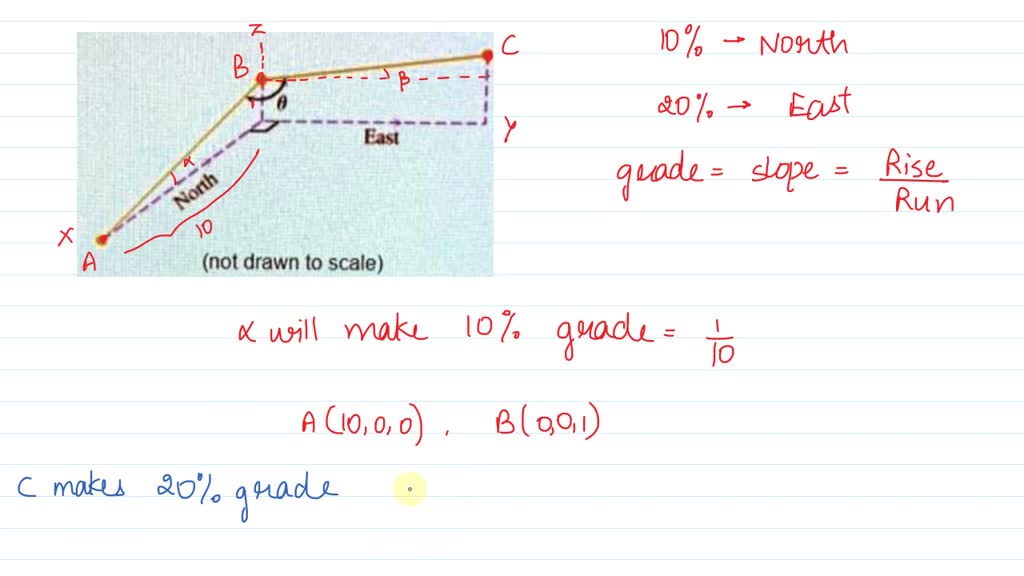 Z
B
C
10% → North
β
θ
20% → East
Y
East
α
grade = slope = Rise
Run
North
10
X
A
(not drawn to scale)
α will make 10% grade = 1
10
A(10,0,0), B(0,0,1)
C makes 20% grade